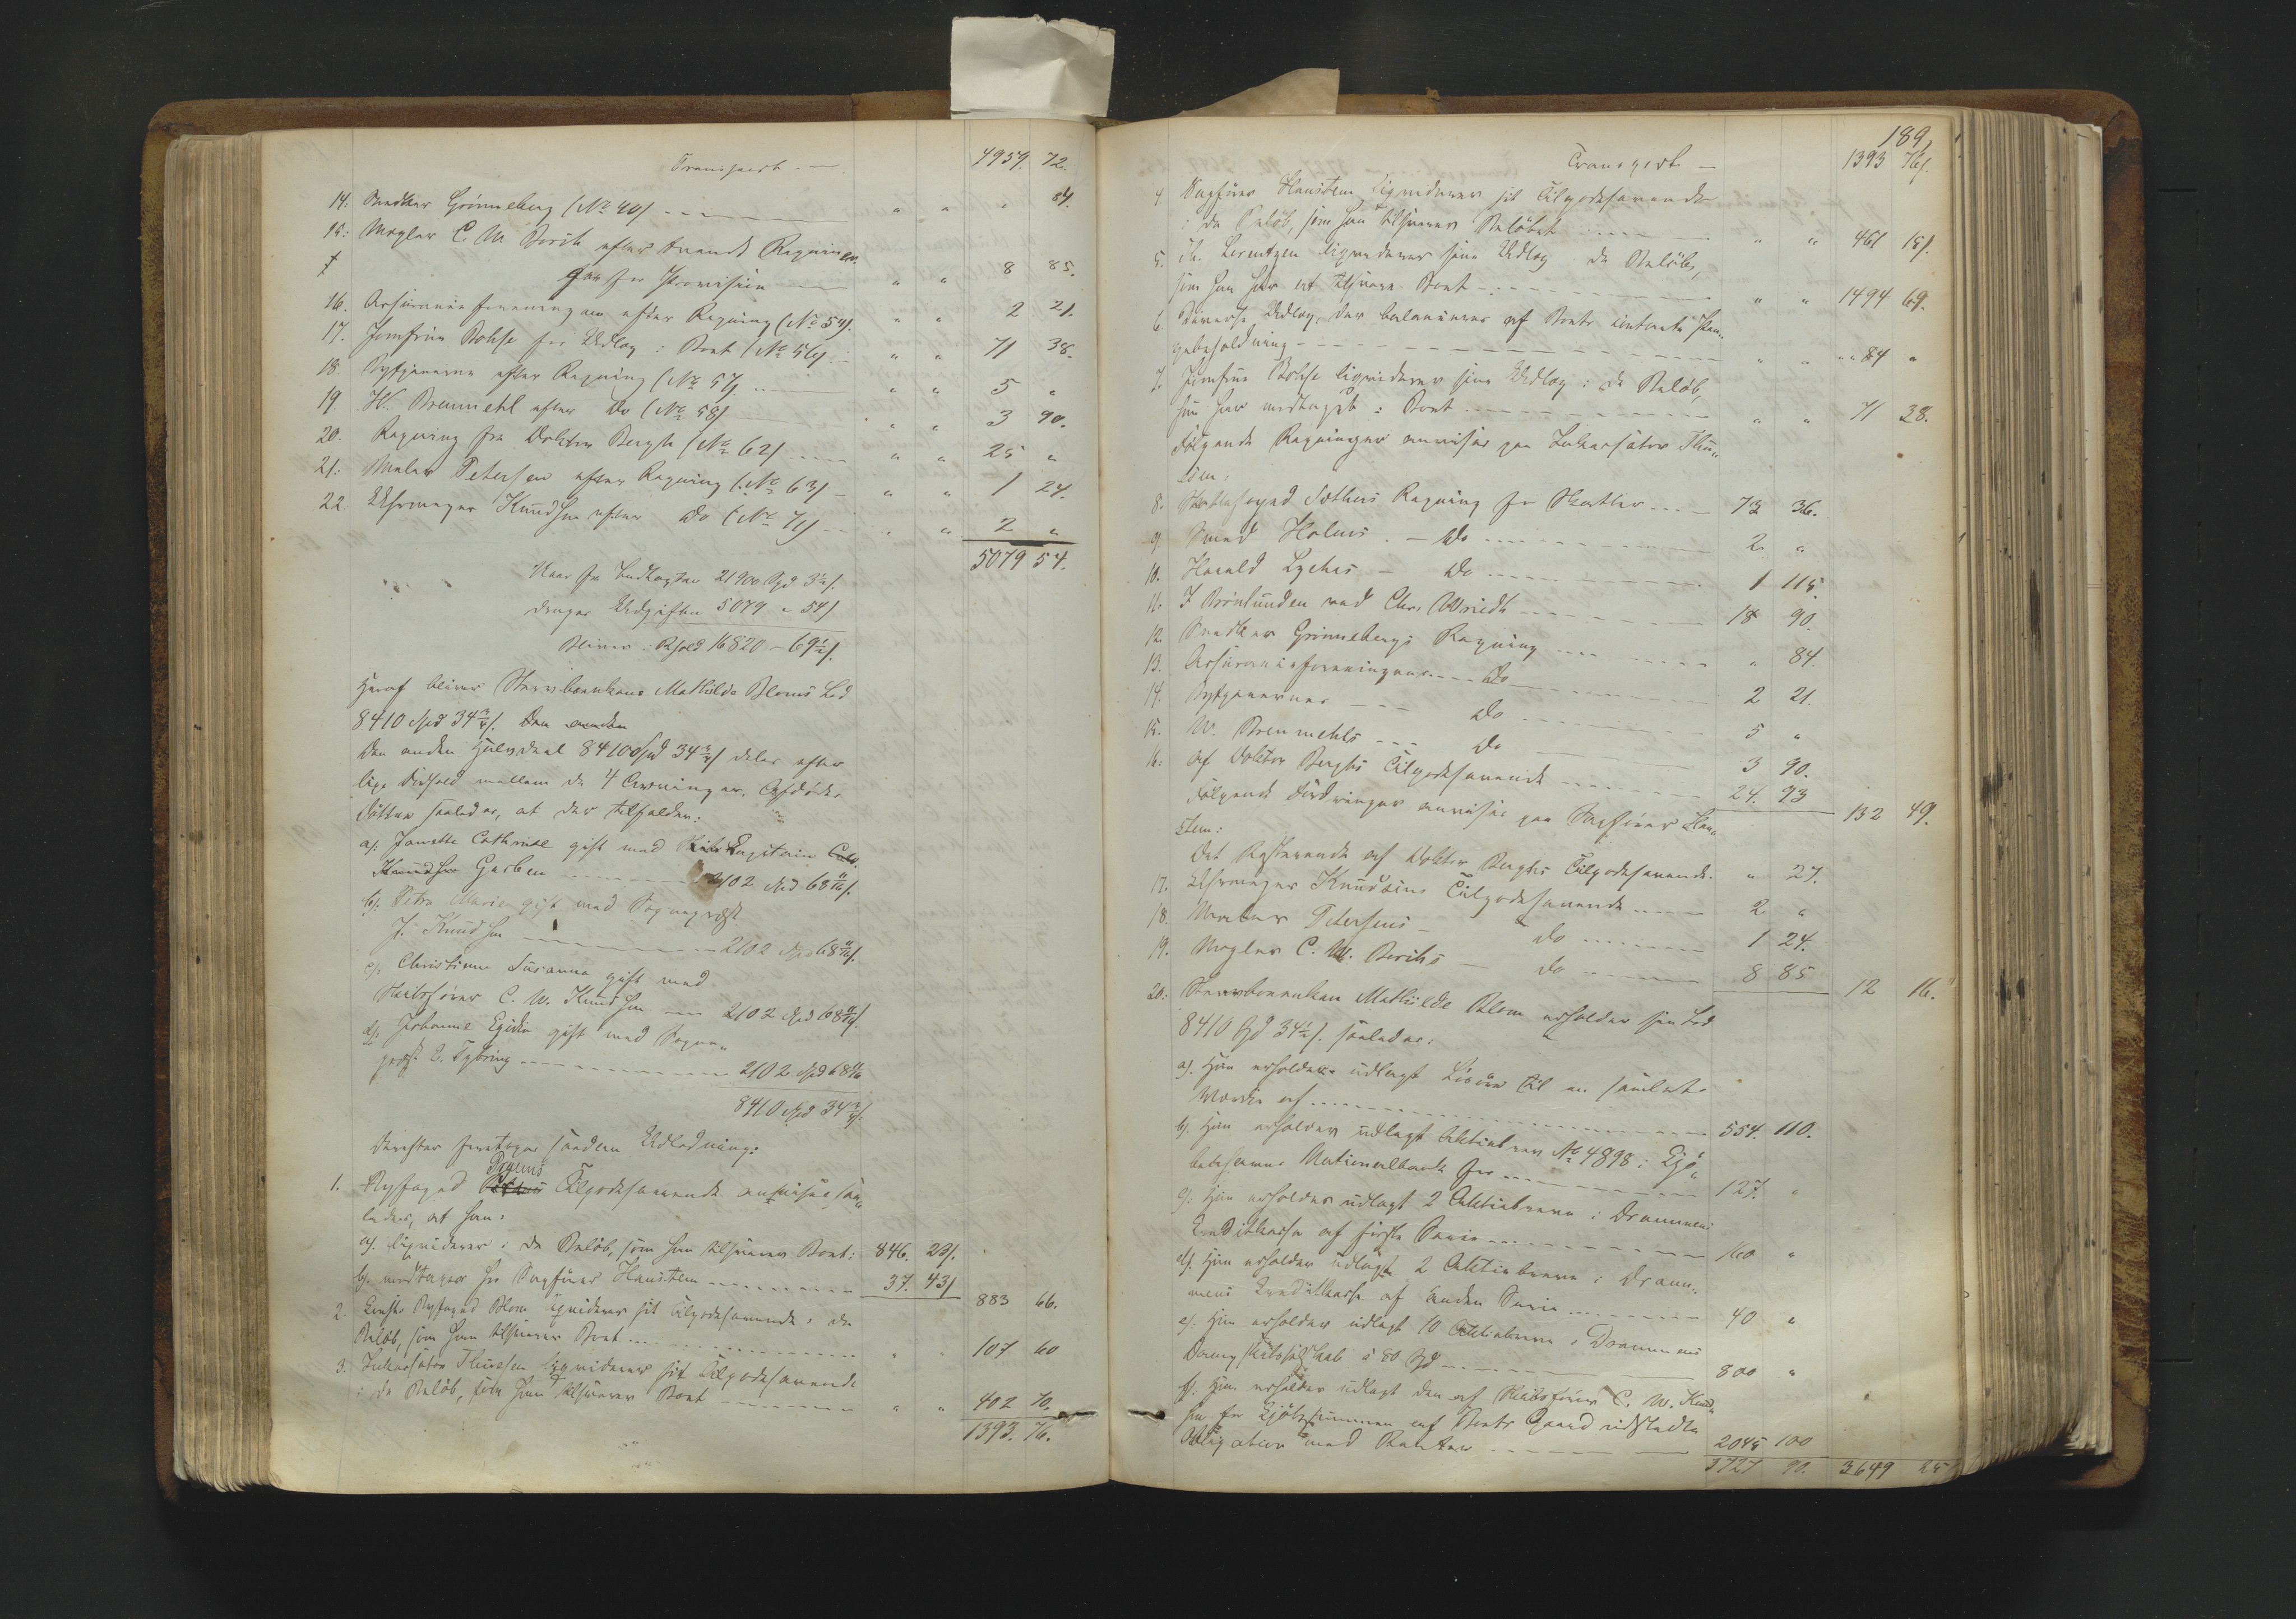 Transport - 4957. 72.
14: Snedker Grönneberg (No 40) " " " 84.
15: Mægler C. M. Borch efter tvende Regninger
for Provision " " 8 85.
16. Assuranceforeningen efter Regning (No 54). " " 2 21.
17. Jomfrue Bohse for Udlæg i Boet (No 56) " " 71 38.
18. efter Regning (No 57) " " 5 "
19. W. Bremmehl efter Do (No 58) " " 3 90.
20. Regning fra Doktor Bergh (No 62) " " 25 "
21: Maler Petersen efter Regning (No 63) - " " 1 24.
22. Uhrmager Knudsen efter Do (No 71) - " " 2 "
5079 54.
Naar fra Indtægten 21900 Spd 3½ s.
drages Udgiften 5079 " 54 s
Bliver i Behold 16820 - 69½ s.
Heraf bliver Stervboenkens Mathilde Bloms Lod
8410 Spd 34¾ s. Den anden
Den anden Halvdeel 8410 Spd 34¾ s deles efter
lige Forhold mellem de 4 Arvinger, Afdödes
Döttre saaledes, at der tilfalder:
a). Janette Cathrine gift med Capitain
Knudsen Garben 2102 Spd 68 11/16 s.
b). Petra Marie gift med Sogneprest
J. Knudsen 2102 Spd 68 11/16 s.
c). Christiane Susanna gift med
Skibsförer C. W. Knudsen 2102 Spd 68 11/16 s.
d). Johanne Egidia gift med Sogne"
prest L. Tybring 2102 Spd 68 11/16
8410 Spd 34¾ s.
Derefter foretages saadan Udlodning:
1. Byfoged Tilgodehavende anvises saa"
ledes, at han:
a). liqviderer i de Beløb, som han tilsvarer Boet: 846. 23 s.
b). modtager fra Sagförer Hansteen 37. 43 s
883 66.
2. Byfoged Blom liqviderer sit Tilgodehavende i de
Beløb, som han tilsvarer Boet " " 107 60
3. Inkassator Thuesen liqviderer sit Tilgodehavende
i de Beløb, som han tilsvarer Boet " " 402 70.
1393. 76.
189,
Transport - 1393 76 s.
4 Sagförer Hansteen liqviderer sit Tilgodehavende
i de Beløb, som han tilsvarer Beløbet " " 461 15 s.
5. Th. Lorentzen liqviderer sine Udlæg i de Beløb,
som han har at tilsvare Boet " " 1494 69.
6 Diverse Udlæg, der balancerer af Boets contante Pen"
gebeholdning " " 84 "
7. Jomfrue Bohse liqviderer sine Udlæg i de Beløb,
hun har modtaget i Boet " " 71 38.
Følgende Regninger anvises paa Inkassator Thu"
esen:
8. Regning for Skatter 73 36.
9 Smed Holms - Do 2. "
10. Harald Lyches - Do 1 115.
11. J Brönlunden ved Chr. Wriedt 18 90.
12. Snedker Grönnebergs Regning " 84.
13. Assuranceforeningens Do 2 21.
14. Do 5 "
15. W. Bremmehls Do 3 90.
16. Af Doktor Berghs Tilgodehavende 24. 93
132 49.
Følgende Fordringer anvises paa Sagförer Han"
steen:
Det Resterende af Doktor Berghs Tilgodehavende. " 27.
17. Uhrmager Knudsens Tilgodehavende 2 "
18. Maler Petersens - Do 1 24.
19. Mægler C. M. Borchs - Do 8 85
12 16.
20. Stervboenken Mathilde Blom erholder sin Lod
8410 Spd 34½ s. saaledes:
a). Hun erholder udlagt Lösöre til en samlet
Værdie af 554. 110.
b). Hun erholder udlagt Aktiebrev No 4898 i Kjö"
benhavns Nationalbank for 127. "
c). Hun erholder udlagt 2 Aktiebreve i Drammens
Kreditkasse af første Serie 160 "
d). Hun erholder udlagt 2 Aktiebreve i Dram"
mens Kreditkasse af anden Serie 40 "
e). Hun erholder udlagt 10 Aktiebreve i Drammens
Dampskibsselskab à 80 Spd 800 "
f). Hun erholder udlagt den af Skibsförer C. W. Knud"
sen for Kjöbesummen af Boets Gaard udstedte
Obligation med Renter 2045 100
3727 90. 3649 25